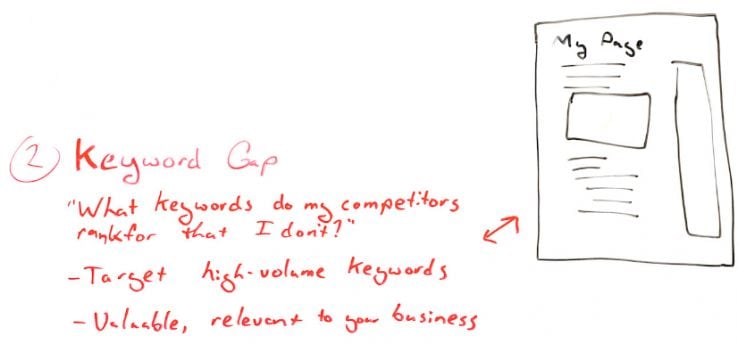 My Page
② Keyword Gap
"What keywords do my competitors
rank for that I don't?"
- Target high-volume keywords
- Valuable, relevant to your business